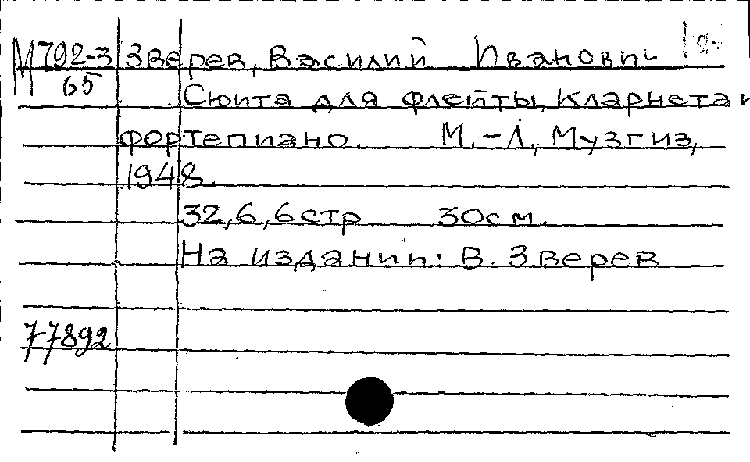 М792-3 Зверев, Василий Иванович
65 Сюита для флейты, кларнета и
фортепиано. М.-Л., Музгиз,
1948.
32,6,6стр 30см.
На издании: В. Зверев
77892